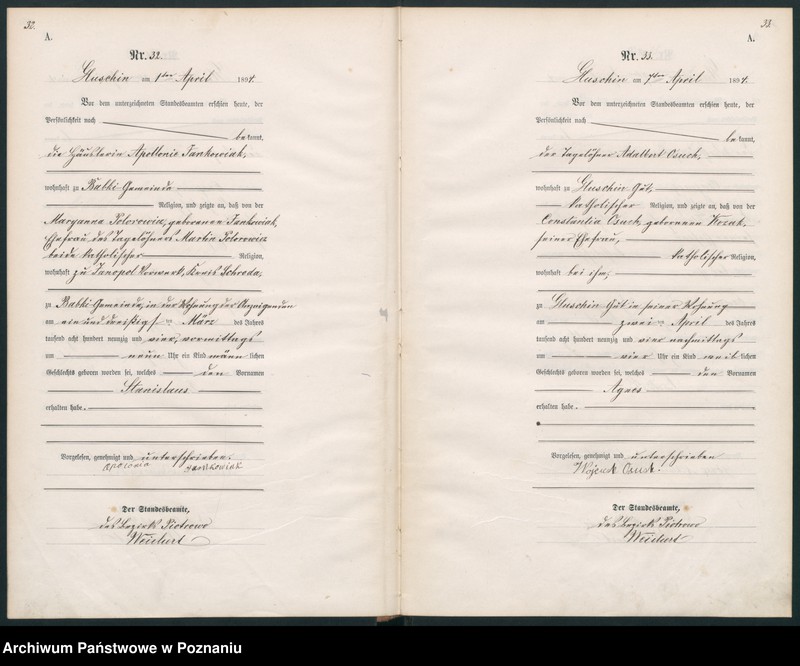 32.
A.
Nr. 32.
Gluschin am 1ten April 1894.
Vor dem unterzeichneten Standesbeamten erschien heute, der
Persönlichkeit nach
bekannt,
die Häuslerin Apollonie Jankowiak,
wohnhaft zu Babki Gemeinde
Religion, und zeigte an, daß von der
Maryanna Polorowicz, geborenen Jankowiak,
Ehefrau des Tagelöhners Martin Polorowicz
beide katholischer Religion,
wohnhaft zu Janopol Vorwerk, Kreis Schroda,
zu Babki Gemeinde, in der Wohnung der Anzeigenden
am ein und dreißigsten März des Jahres
tausend acht hundert neunzig und vier, vormittags
um neun Uhr ein Kind männlichen
Geschlechts geboren worden sei, welches den Vornamen
Stanislaus
erhalten habe.
Vorgelesen, genehmigt und unterschrieben.
Apolonia Jankowiak
Der Standesbeamte,
des Bezirk Piotrowo
Weichert
33.
A.
Nr. 33.
Gluschin am 7ten April 1894.
Vor dem unterzeichneten Standesbeamten erschien heute, der
Persönlichkeit nach
bekannt,
der Tagelöhner Adalbert Osuch,
wohnhaft zu Gluschin Gut,
katholischer Religion, und zeigte an, daß von der
Constantia Osuch, geborenen Wozak,
seiner Ehefrau,
katholischer Religion,
wohnhaft bei ihm,
zu Gluschin Gut in seiner Wohnung
am zweiten April des Jahres
tausend acht hundert neunzig und vier nachmittags
um vier Uhr ein Kind weiblichen
Geschlechts geboren worden sei, welches den Vornamen
Agnes
erhalten habe.
Vorgelesen, genehmigt und unterschrieben
Wojciech Osuch.
Der Standesbeamte,
des Bezirk Piotrowo
Weichert
Archiwum Państwowe w Poznaniu